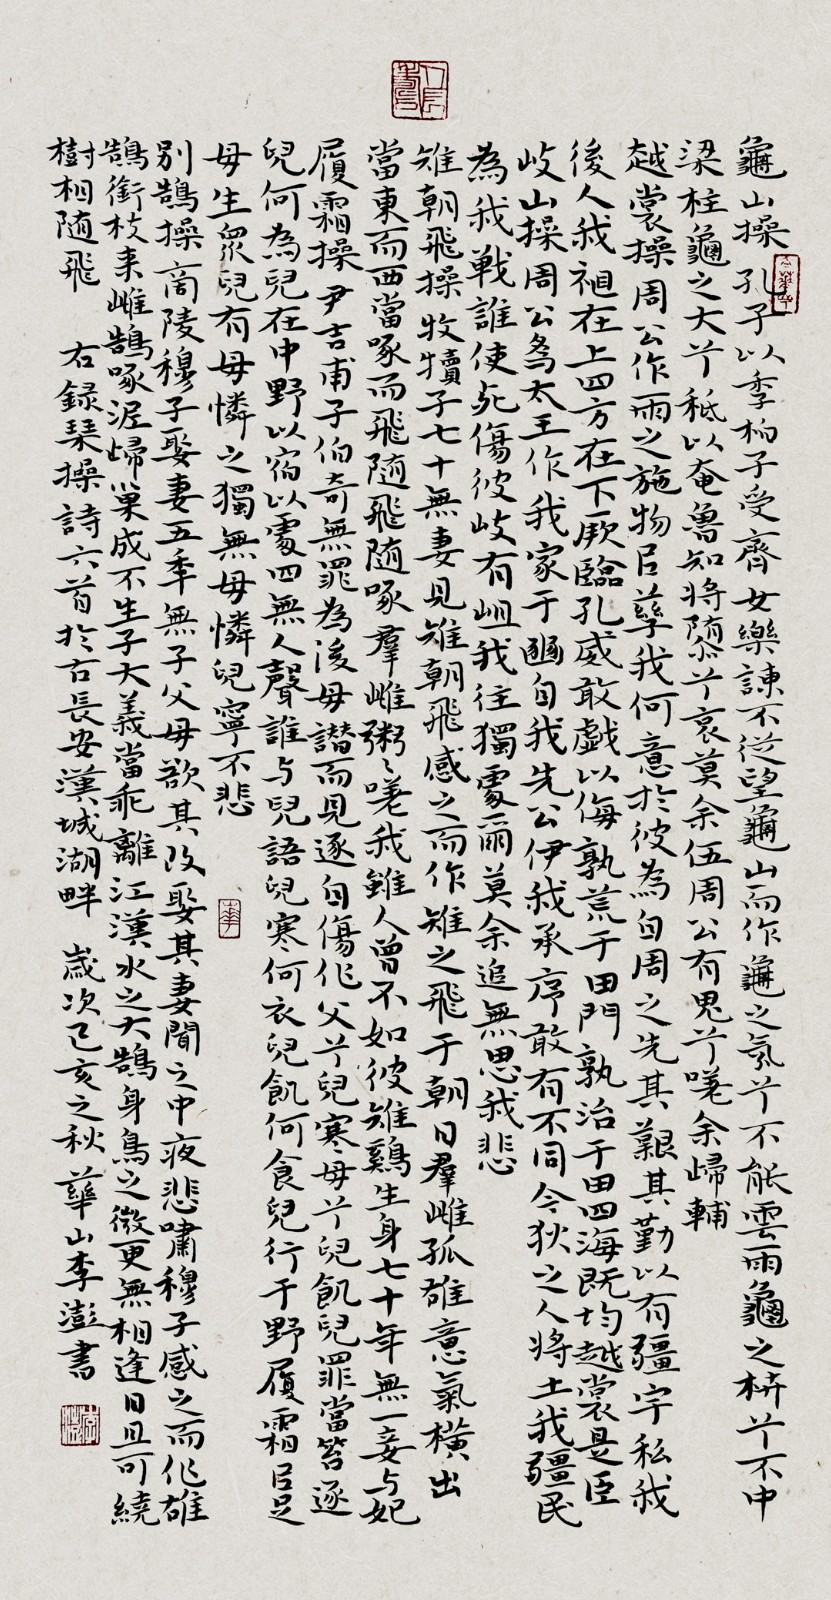 龜山操 孔子以季桓子受齊女樂諫不從望龜山而作龜之氣兮不能雲雨龜之枿兮不中
梁柱龜之大兮秪以奄魯知將隳兮哀莫余伍周公有鬼兮嗟余歸輔
越裳操周公作雨之施物以孳我何意於彼為自周之先其艱其勤以有疆宇私我
後人我祖在上四方在下厥臨孔威敢戲以侮孰荒于田門孰治于田四海既均越裳是臣
岐山操周公為太王作我家于豳自我先公伊我承序敢有不同今狄之人將土我疆民
為我戰誰使死傷彼岐有岨我往獨處爾莫余追無思我悲
雉朝飛操牧犢子七十無妻見雉朝飛感之而作雉之飛于朝日羣雌孤雄意氣橫出
當東而西當啄而飛隨飛隨啄羣雌粥〻嗟我雖人曾不如彼雉鷄生身七十年無一妾与妃
履霜操 尹吉甫子伯奇無罪為後母譖而見逐自傷作父兮兒寒母兮兒飢兒罪當笞逐
兒何為兒在中野以宿以處四無人聲誰与兒語兒寒何衣兒飢何食兒行于野履霜以足
母生眾兒有母憐之獨無母憐兒寧不悲
別鵠操 商陵穆子娶妻五年無子父母欲其改娶其妻聞之中夜悲嘯穆子感之而作雄
鵠銜枝来雌鵠啄泥歸巢成不生子大義當乖離江漢水之大鵠身鳥之微更無相逢日且可繞
樹相随飛 右録琹操詩六首於古長安漢城湖畔 歲次己亥之秋 華山李澎書